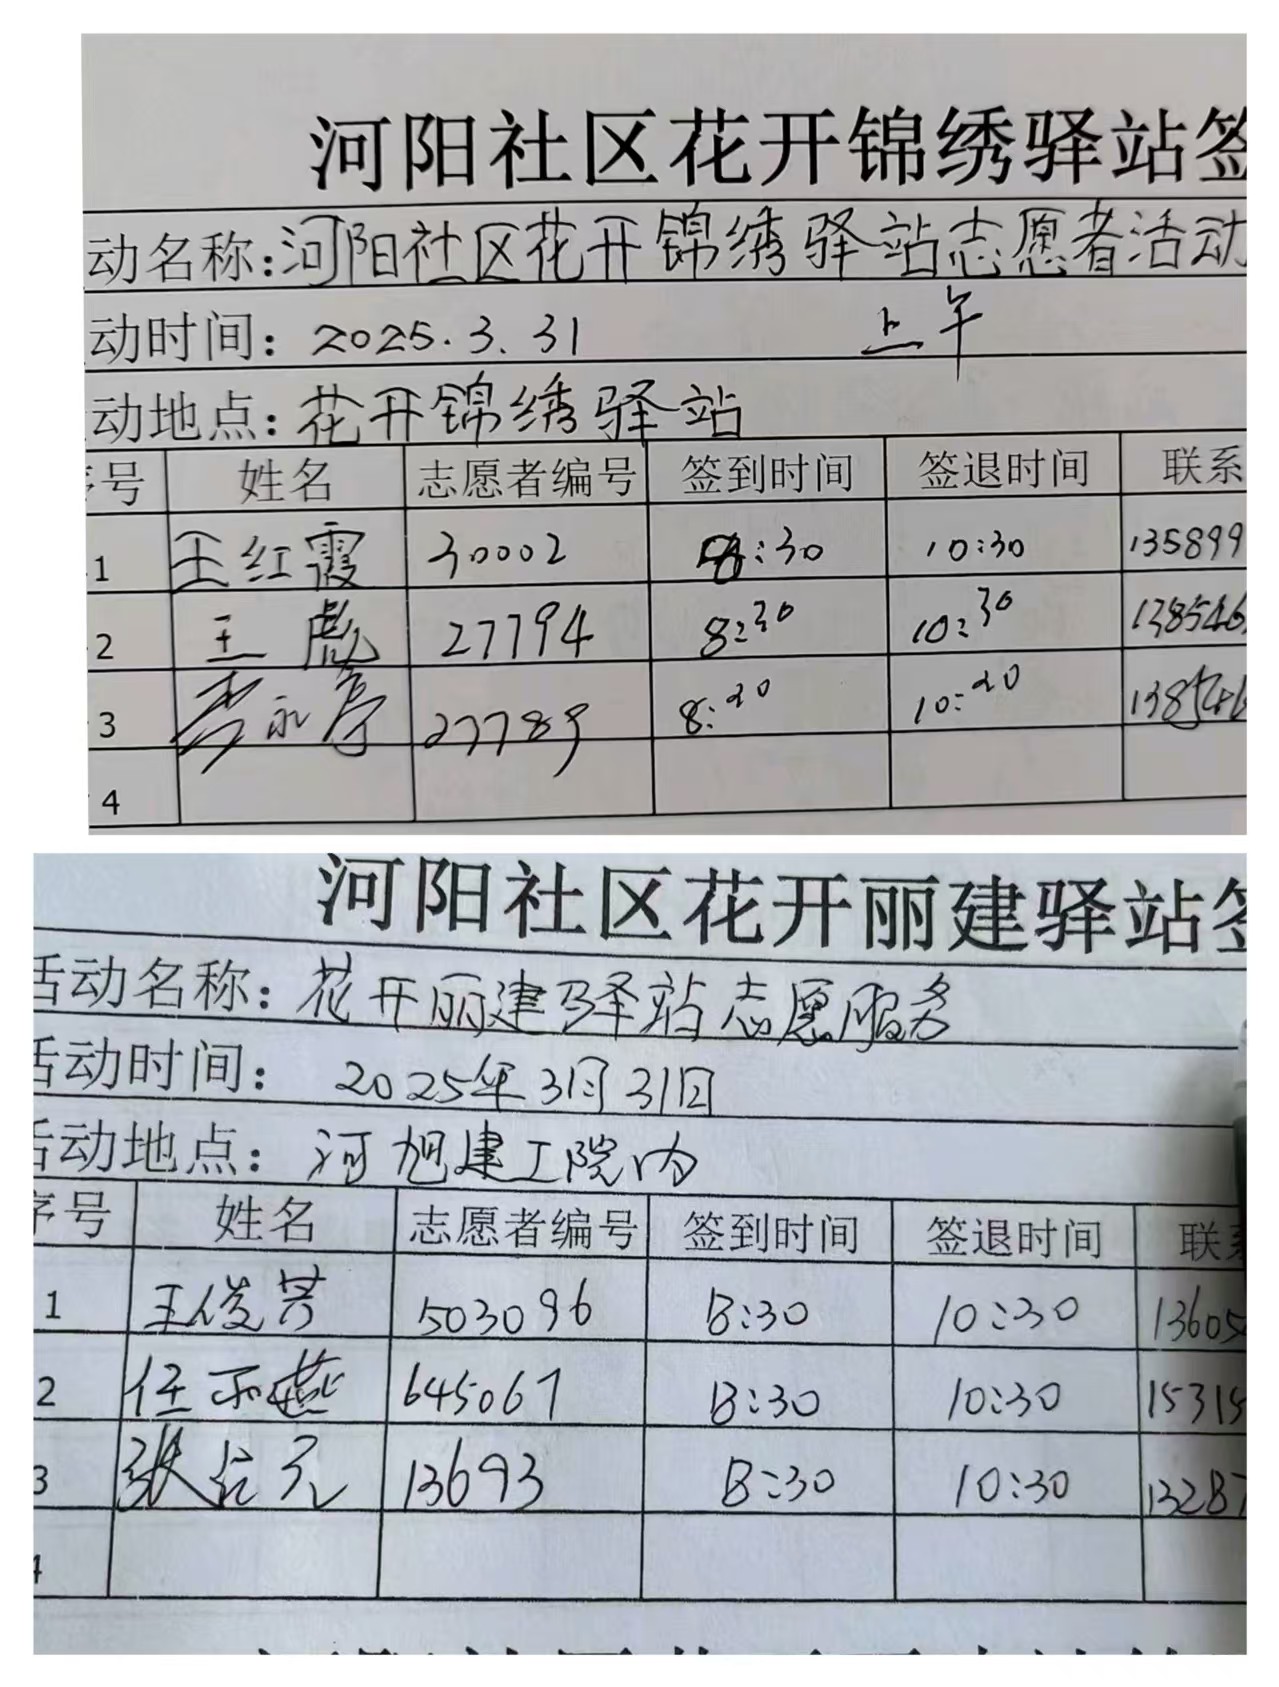 河阳社区花开锦绣驿站签
动名称:河阳社区花开锦绣驿站志愿者活动
动时间: 2025.3.31 上午
动地点:花开锦绣驿站
序号 姓名 志愿者编号 签到时间 签退时间 联系
1 王红霞 30002 8:30 10:30 135899
2 王彪 27794 8:30 10:30 138546
3 永 27789 8:20 10:20
4
河阳社区花开丽建驿站签
活动名称:花开丽建驿站志愿服务
活动时间: 2025年3月31日
活动地点: 河旭建工院内
序号 姓名 志愿者编号 签到时间 签退时间 联系
1 王俊芳 503096 8:30 10:30 13605
2 任燕 645067 8:30 10:30 15315
3 张元 13693 8:30 10:30 13287
4